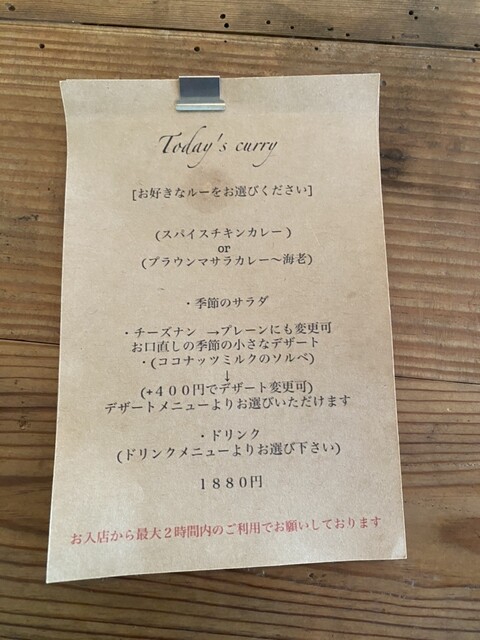 Today's curry
[お好きなルーをお選びください]
(スパイスチキンカレー)
or
(プラウンマサラカレー〜海老)
・季節のサラダ
・チーズナン →プレーンにも変更可
お口直しの季節の小さなデザート
・(ココナッツミルクのソルベ)
↓
(+400円でデザート変更可)
デザートメニューよりお選びいただけます
・ドリンク
(ドリンクメニューよりお選び下さい)
1880円
お入店から最大2時間内のご利用でお願いしております